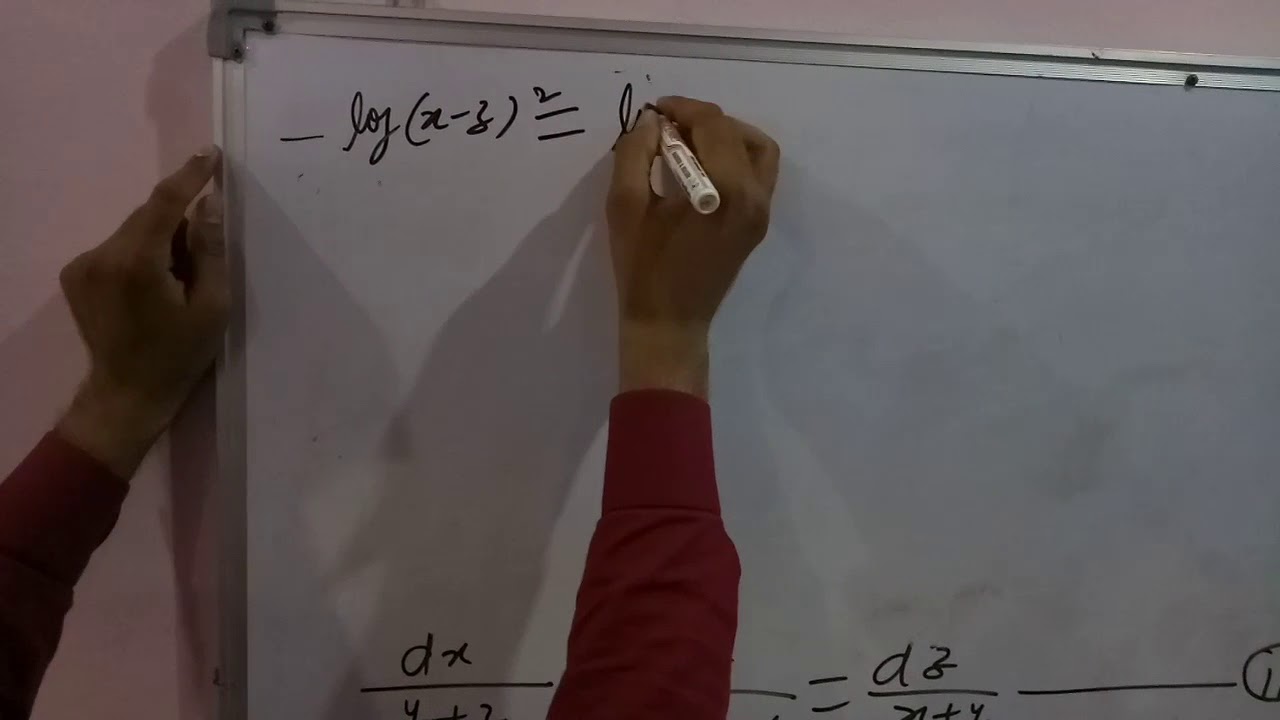 - log(x-z)² = l
dx = dz
y+z x+y